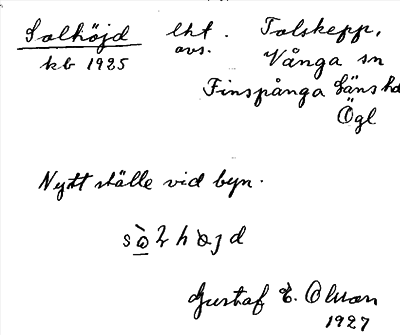 Solhöjd lht. Tolskepp,
kb 1925 avs. Vånga sn
Finspånga läns hd
Ögl
Nytt ställe vid byn.
Gustaf E. Olsson
1927